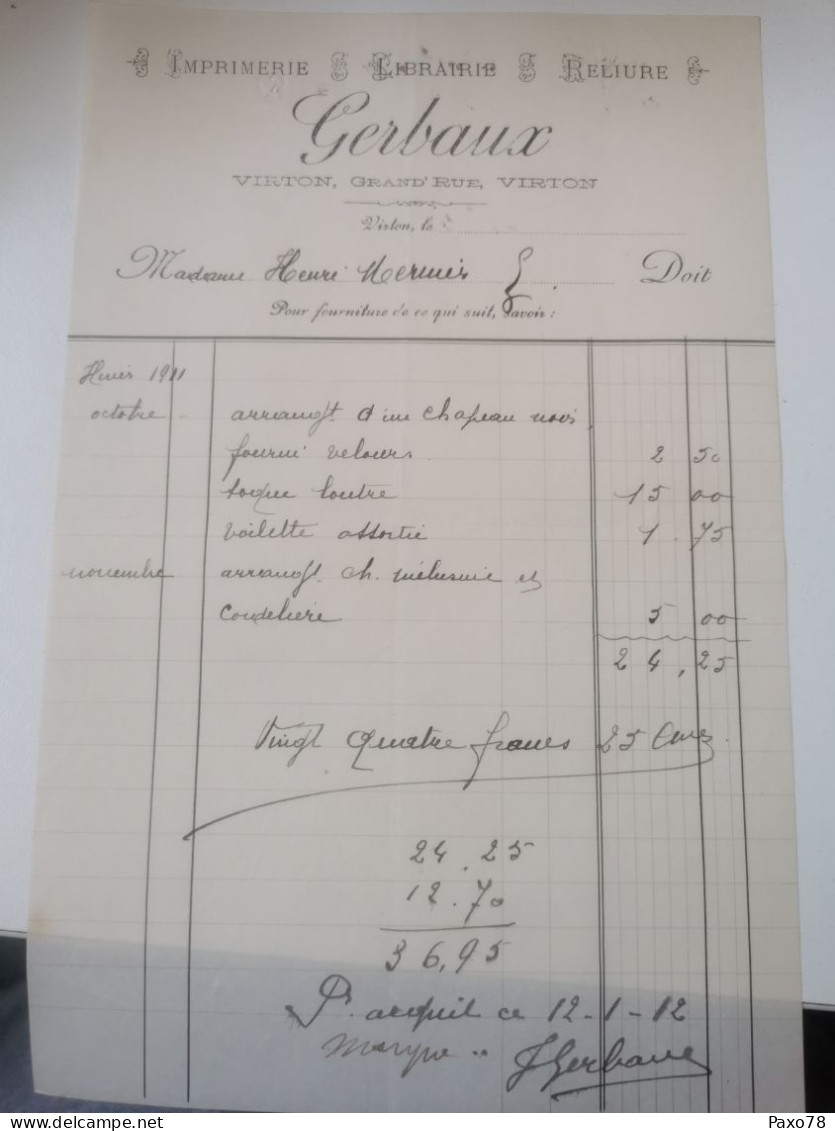 Imprimerie Librairie Reliure
Gerbaux
Virton, Grand'Rue, Virton
Virton, le
Madame Henri Mernier Doit
Pour fourniture de ce qui suit, savoir :
Hiver 1911
octobre arrangt d'un chapeau noir
fourni velours 2 50
toque loutre 15 00
voilette assortie 1.75
novembre arrangt. ch. mélusine et
cordelière 5 00
24,25
Vingt quatre francs 25 Cmes
24.25
12.70
36,95
Pr. acquit ce 12-1-12
J Gerbaux
© delcampe.net
Paxo78